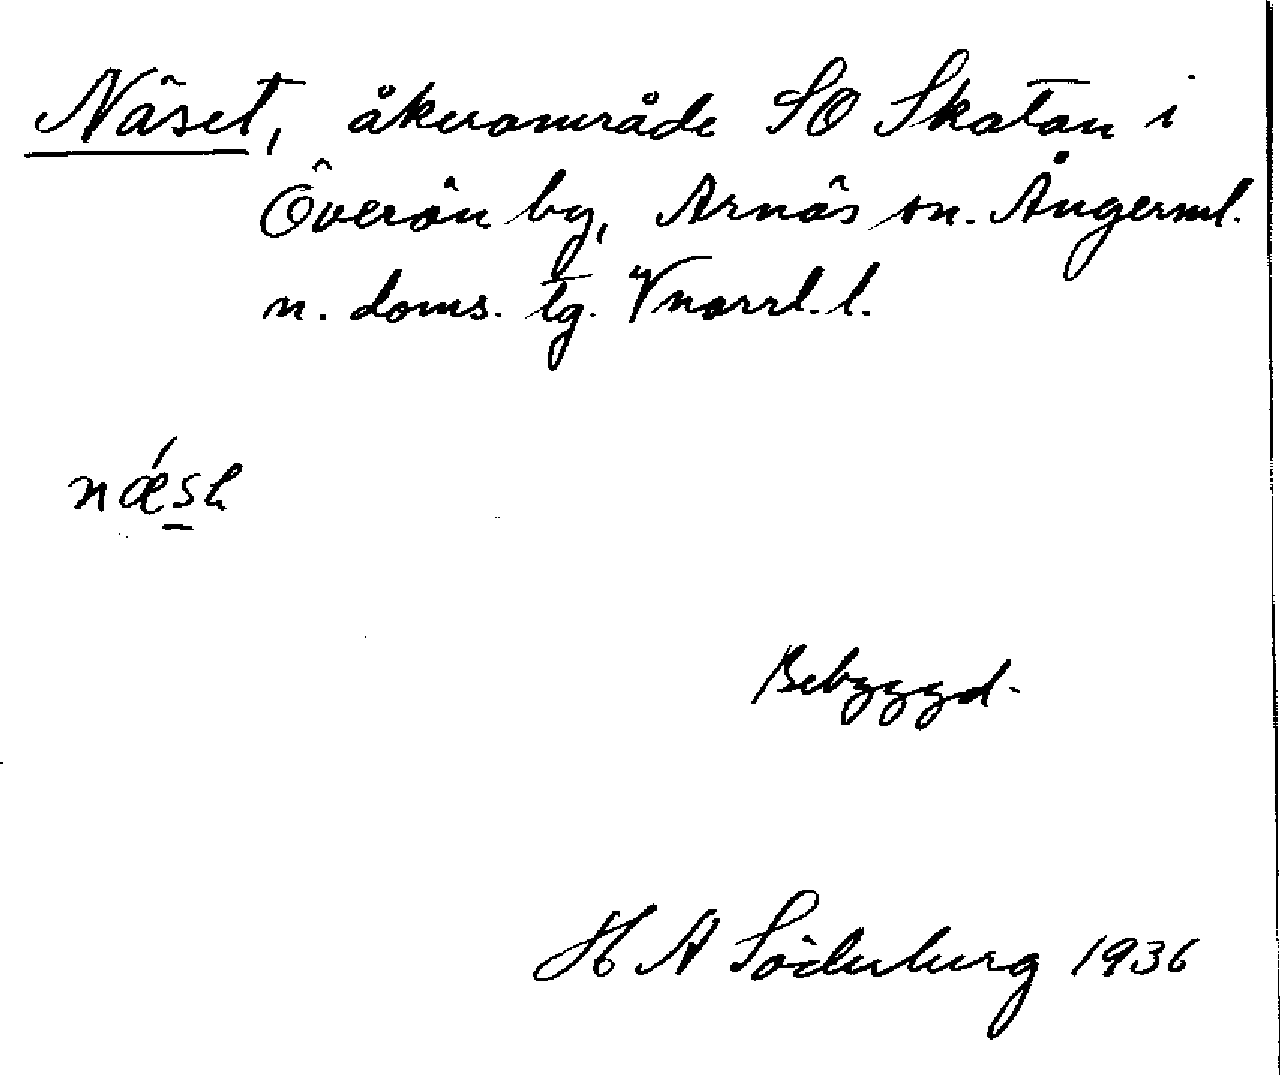 Näset, åkerområde SO Skatan i
Överön by, Arnäs sn. Ångerml.
n. doms. tg. Vnorrl. l.
nǽsh
Bebyggd.
H A Söderberg 1936